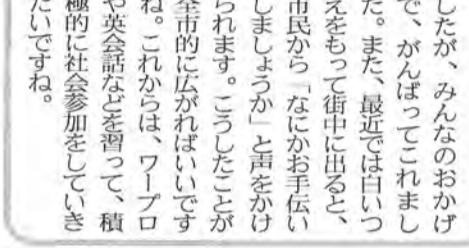 したが、みんなのおかげ
で、がんばってこれまし
た。また、最近では白いつ
えをもって街中に出ると、
市民から「なにかお手伝い
しましょうか」と声をかけ
られます。こうしたことが
全市的に広がればいいです
ね。これからは、ワープロ
や英会話などを習って、積
極的に社会参加をしていき
たいですね。